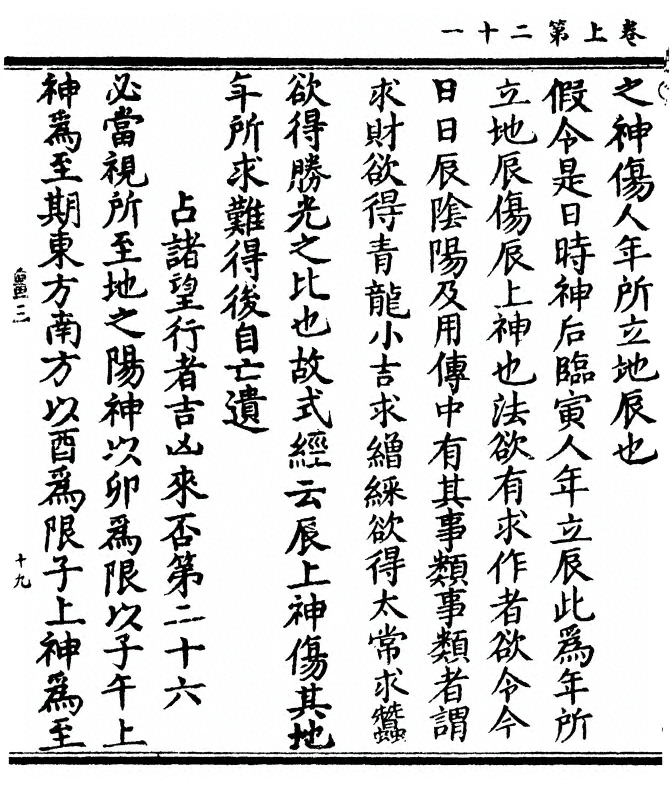 卷上第二十一
之神傷人年所立地辰也
假令是日時神后臨寅人年立辰此爲年所
立地辰傷辰上神也法欲有求作者欲令今
日日辰陰陽及用傳中有其事類事類者謂
求財欲得青龍小吉求繒綵欲得太常求蠶
欲得勝光之比也故式經云辰上神傷其地
年所求難得後自亡遺
占諸望行者吉凶來否第二十六
必當視所至地之陽神以卯爲限以子午上
神爲至期東方南方以酉爲限子上神爲至
三
十九